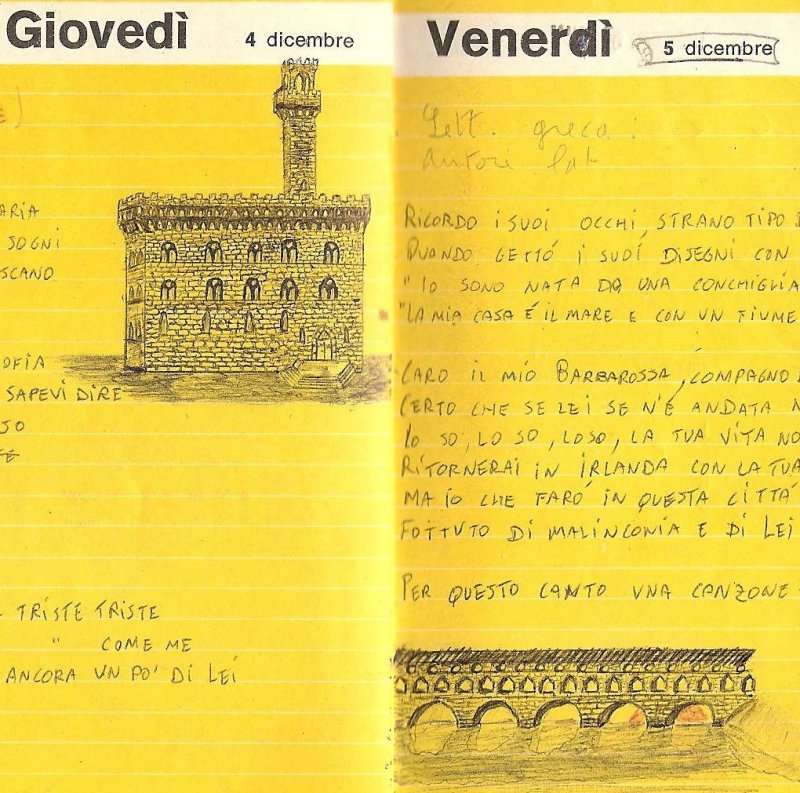 Giovedì 4 dicembre
ARIA
SOGNI
SCANO
OFIA
SAPEVI DIRE
TRISTE TRISTE
" COME ME
ANCORA UN PO' DI LEI
Venerdì 5 dicembre
Lett. greca:
autore
RICORDO I SUOI OCCHI, STRANO TIPO D
QUANDO GETTÓ I SUOI DISEGNI CON
" IO SONO NATA DA UNA CONCHIGLIA
"LA MIA CASA É IL MARE E CON UN FIUME
CARO IL MIO BARBAROSSA, COMPAGNO
CERTO CHE SE LEI SE N'É ANDATA N
IO SO, LO SO, LO SO, LA TUA VITA NO
RITORNERAI IN IRLANDA CON LA TUA
MA IO CHE FARÓ IN QUESTA CITTÁ
FOTTUTO DI MALINCONIA E DI LEI
PER QUESTO CANTO UNA CANZONE